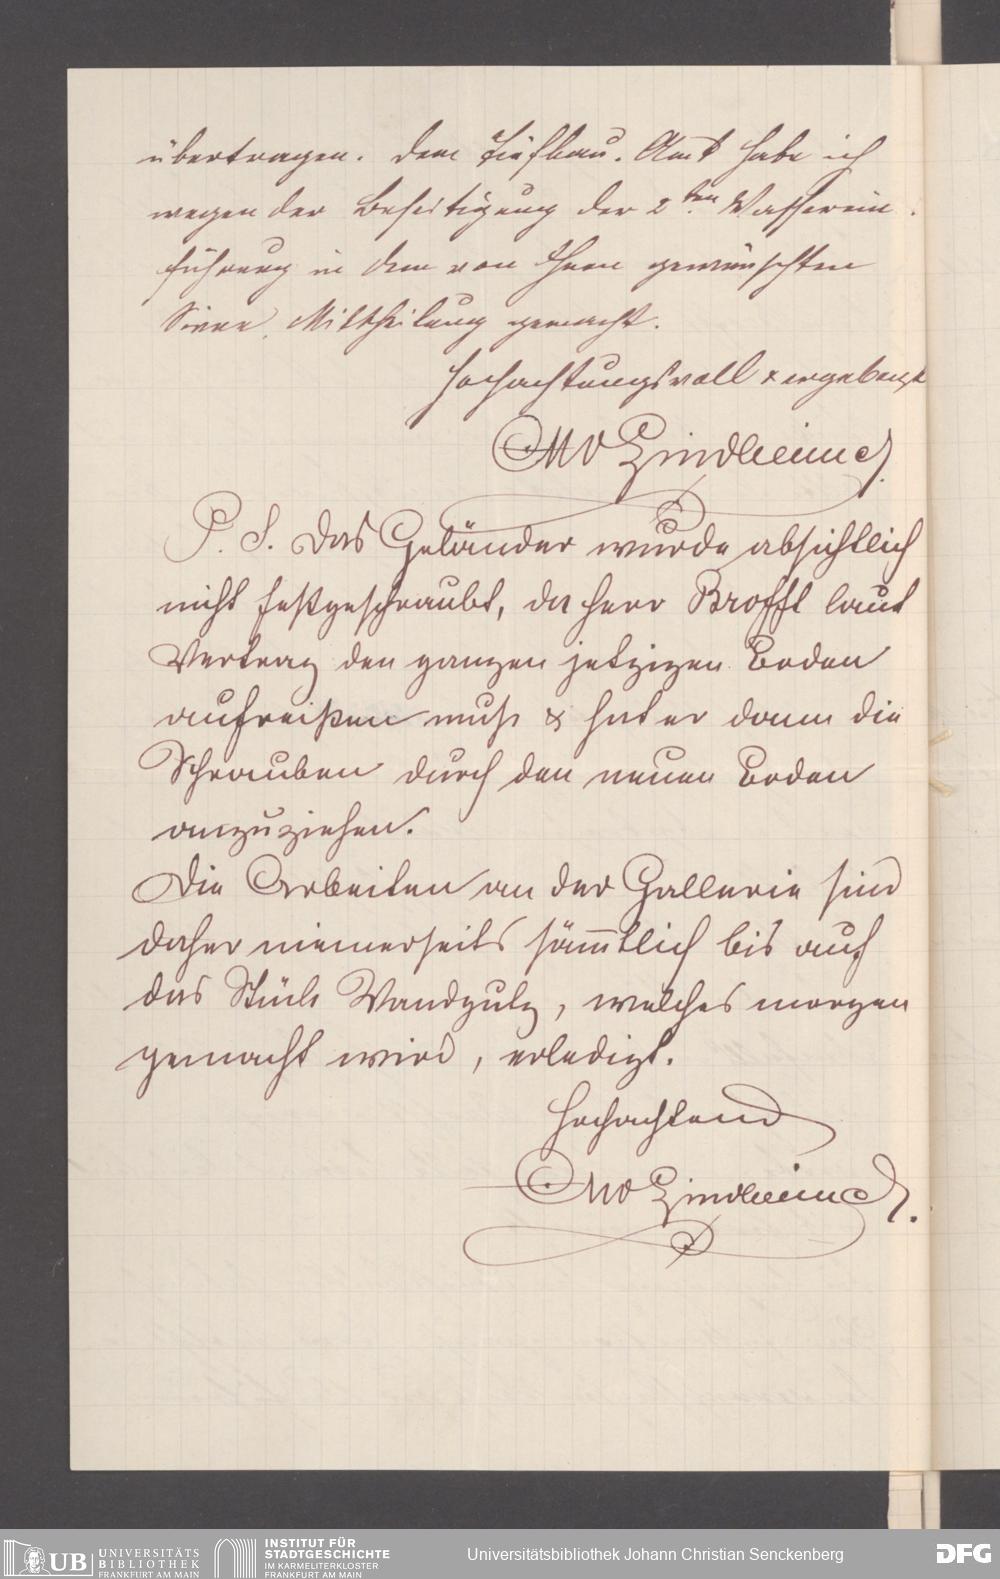 übertragen. Dem Tiefbau-Amt habe ich
wegen der Beseitigung der 2ten Wasserein-
führung in dem von Ihnen gewünschten
Sinne Mittheilung gemacht.
Hochachtungsvoll & ergebenst
Otto Lindheimer.
P. S. Das Geländer wurde absichtlich
nicht festgeschraubt, da Herr Brofft laut
Vertrag den ganzen jetzigen Boden
aufreißen muß & hat er dann die
Schrauben durch den neuen Boden
anzuziehen.
Die Arbeiten an der Gallerie sind
daher meinerseits sämmtlich bis auf
das Stück Wandputz, welches morgen
gemacht wird, erledigt.
Hochachtend
Otto Lindheimer.
UB UNIVERSITÄTS
BIBLIOTHEK
FRANKFURT AM MAIN
INSTITUT FÜR
STADTGESCHICHTE
IM KARMELITERKLOSTER
FRANKFURT AM MAIN
Universitätsbibliothek Johann Christian Senckenberg
DFG